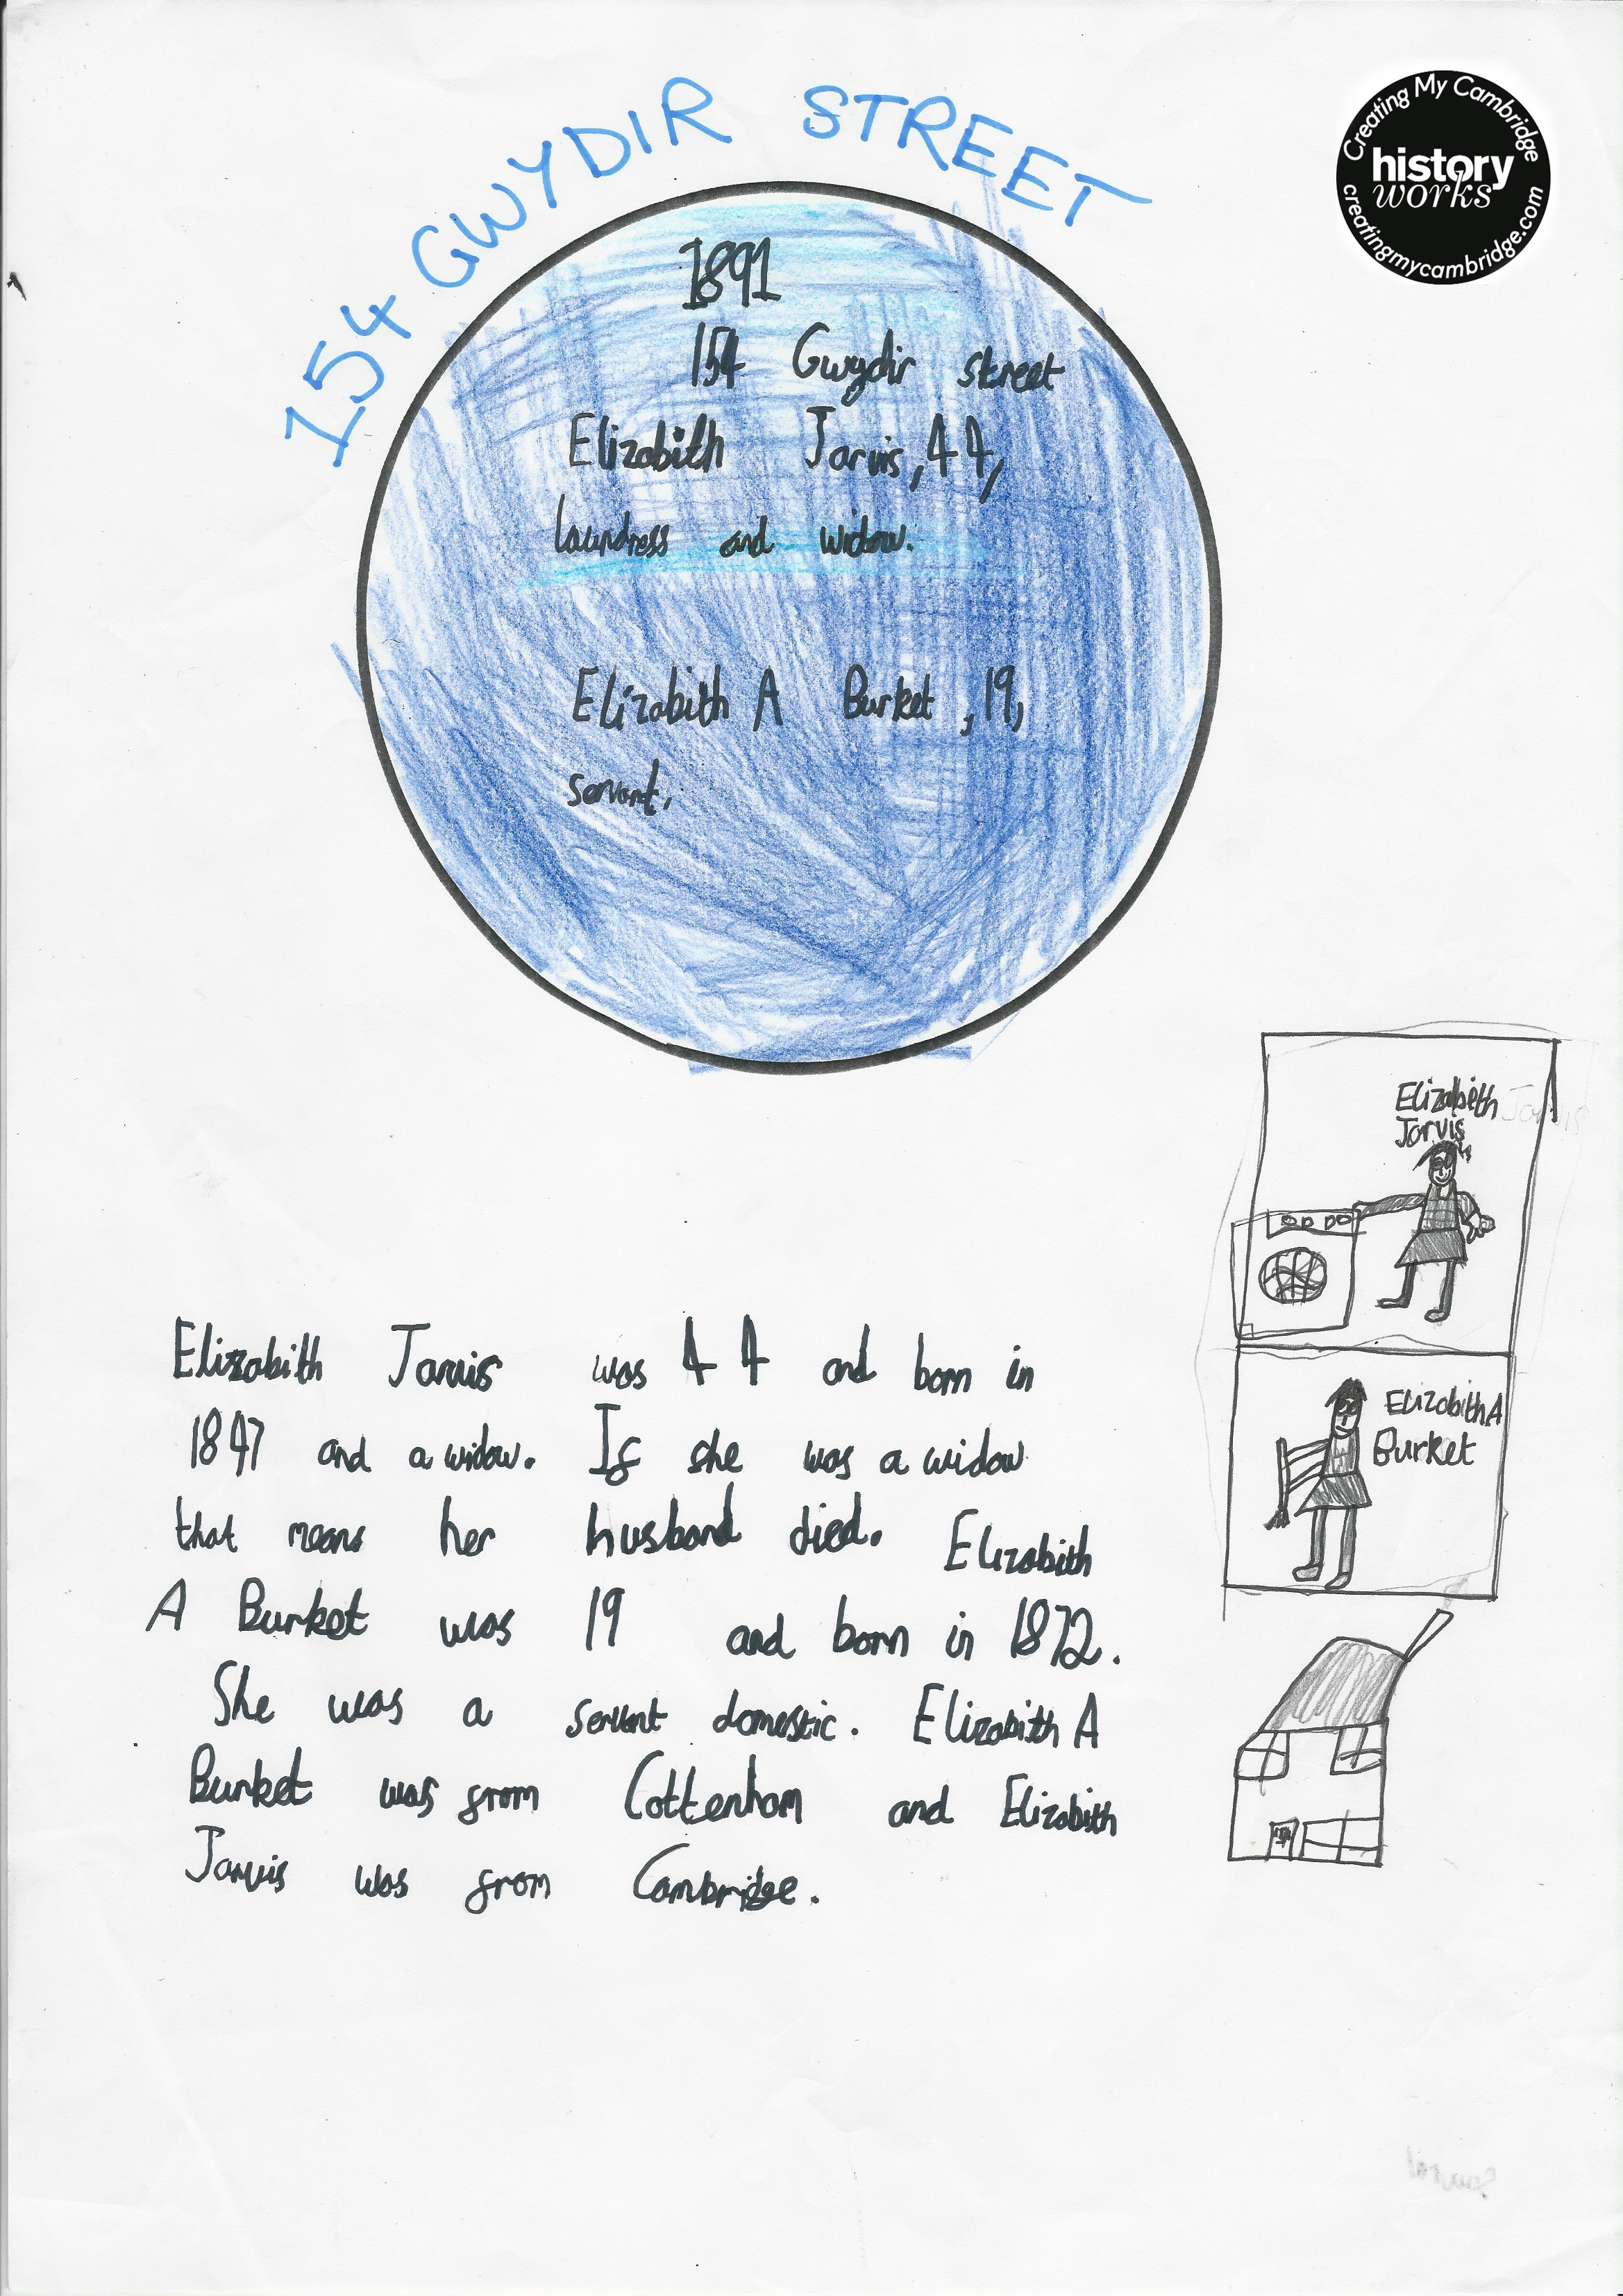 154 GWYDIR STREET
Creating My Cambridge
history
works
creatingmycambridge.com
1891
154 Gwydir street
Elizabith Jarvis, 44,
laundress and widow.
Elizabith A Burket, 19,
servant,
Elizabeth Jarvis
Jarvis
Elizabith A
Burket
Elizabith Jarvis was 44 and born in
1847 and a widow. If she was a widow
that means her husband died. Elizabith
A Burket was 19 and born in 1872.
She was a servant domestic. Elizabith A
Burket was from Cottenham and Elizabith
Jarvis was from Cambridge.